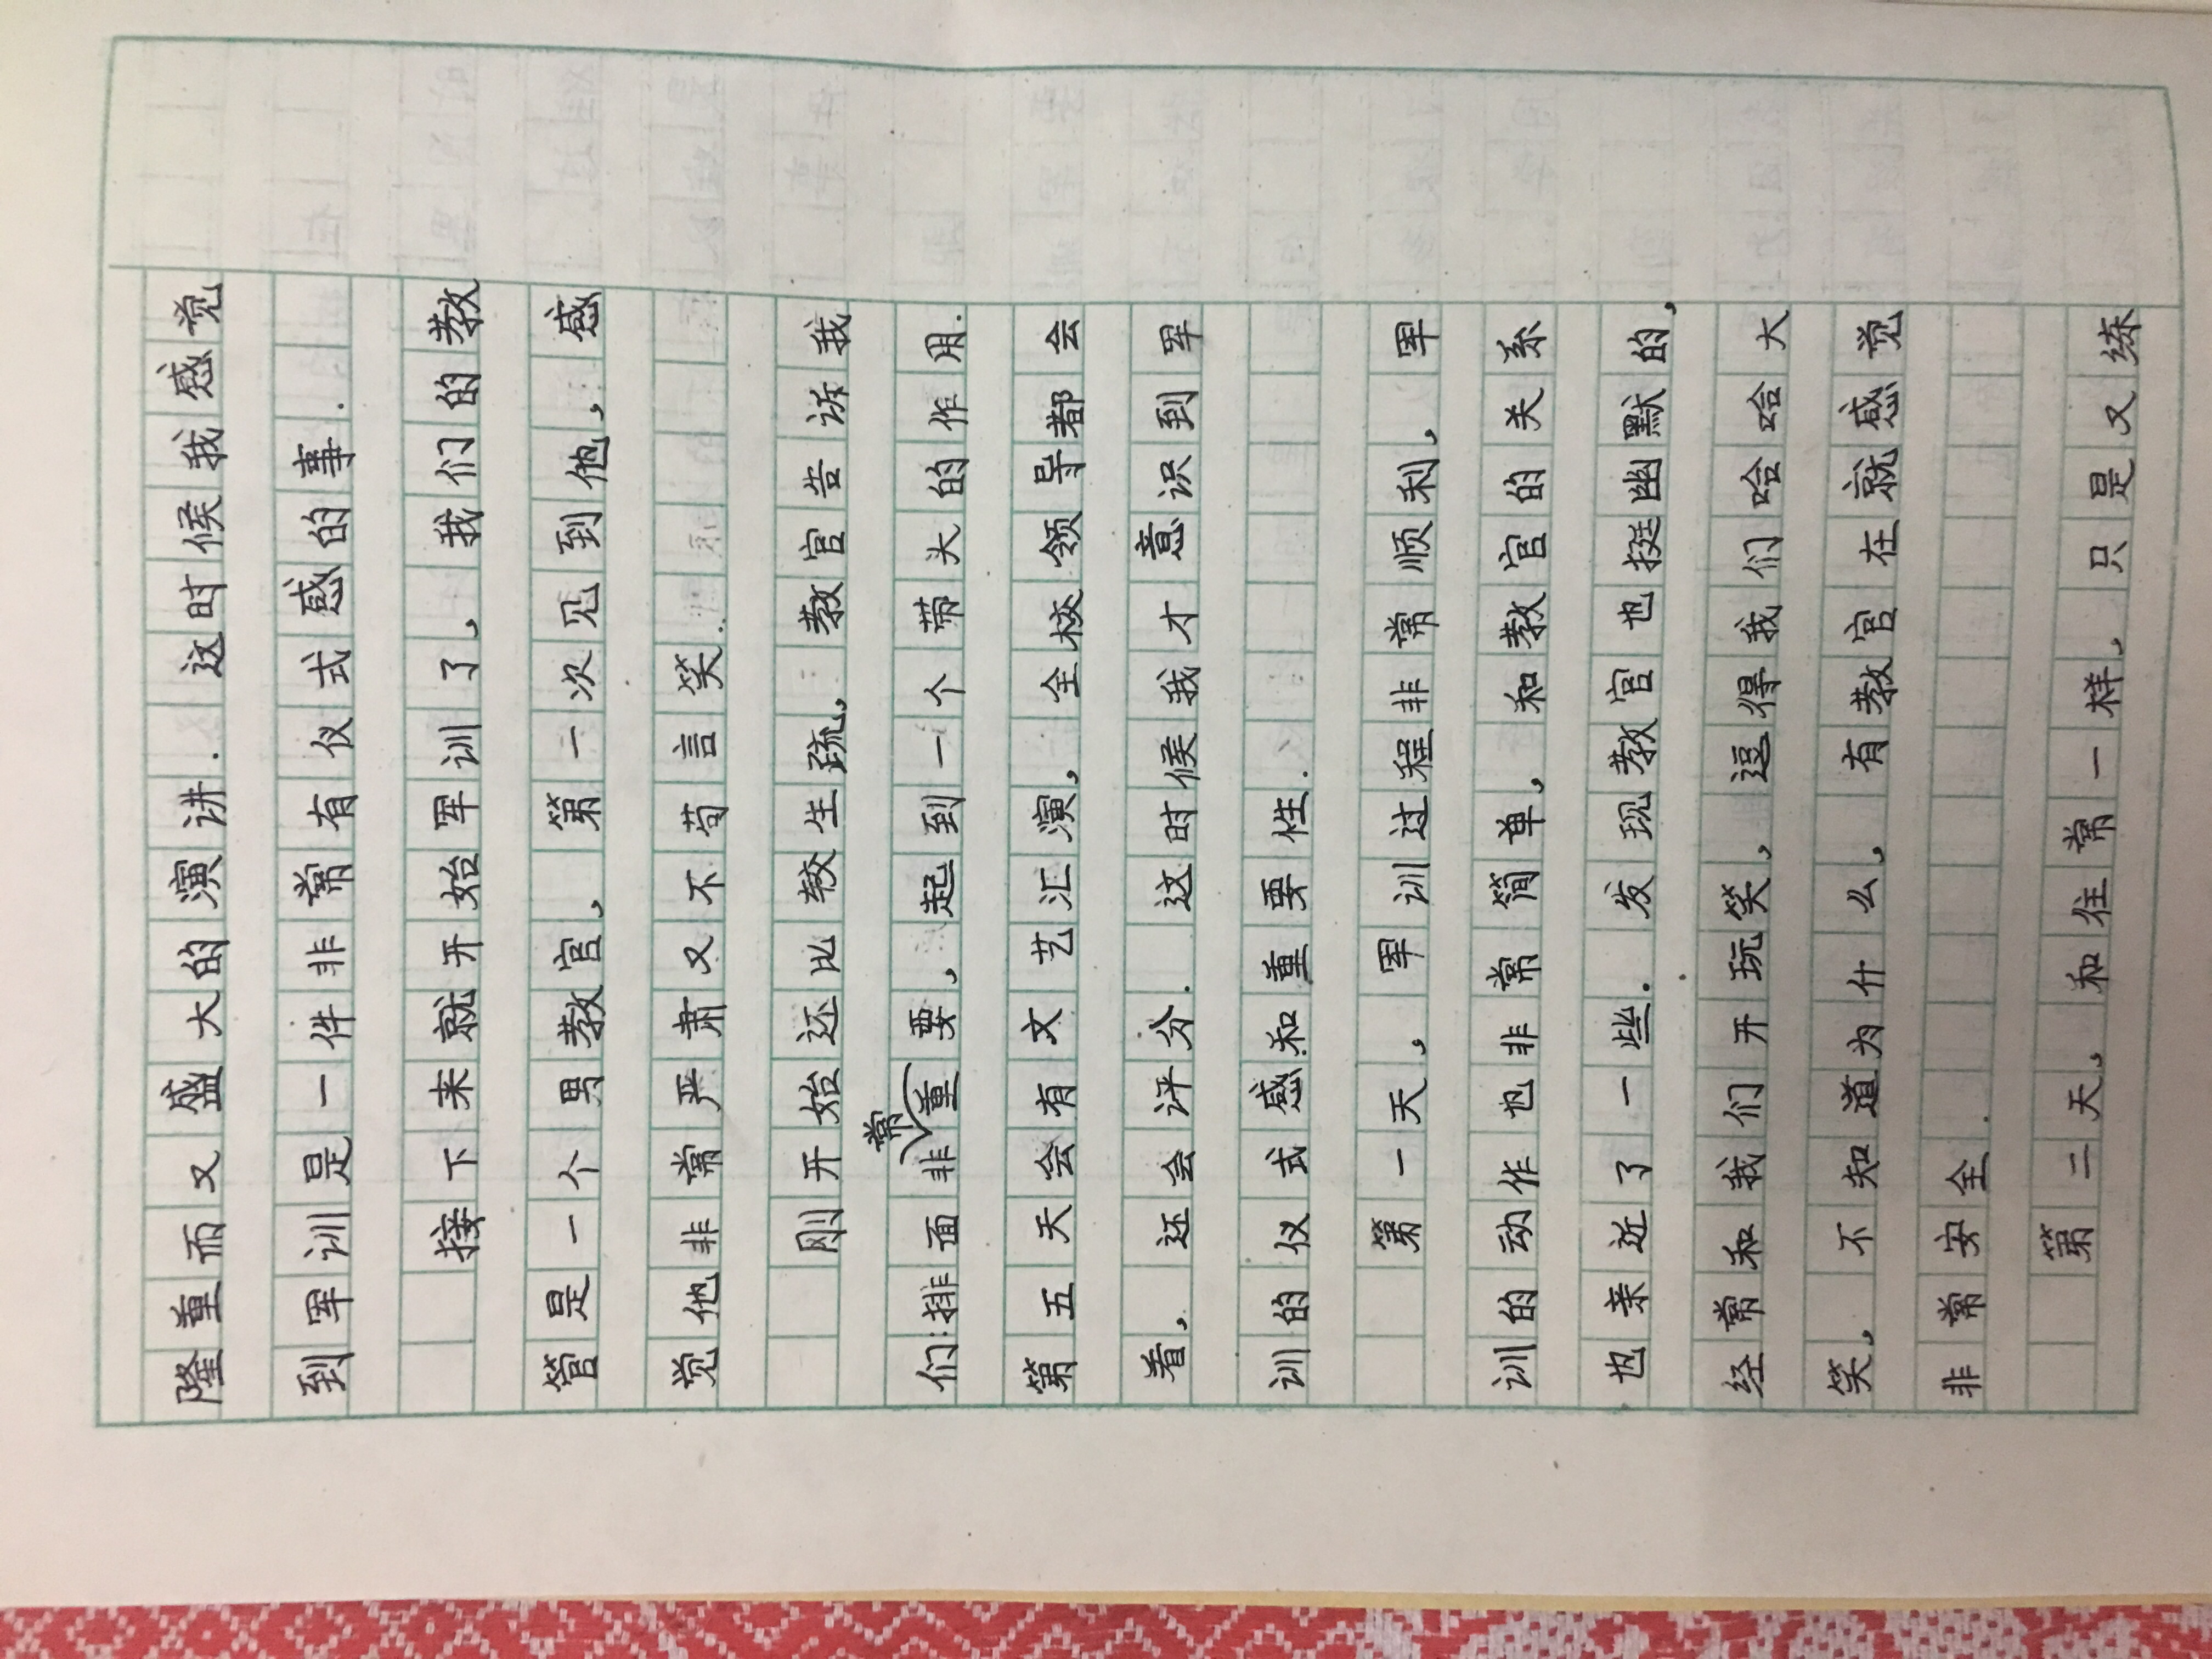 隆重而又盛大的演讲.这时候我感觉
到军训是一件非常有仪式感的事.
接下来就开始军训了,我们的教
管是一个男教官,第一次见到他,感
觉他非常严肃又不苟言笑.
刚开始还比较生疏,教官告诉我
们:排面非常重要,起到一个带头的作用.
第五天会有文艺汇演,全校领导都会
看,还会评分.这时候我才意识到军
训的仪式感和重要性.
第一天,军训过程非常顺利,军
训的动作也非常简单,和教官的关系
也亲近了一些.发现教官也挺幽默的,
经常和我们开玩笑,逗得我们哈哈大
笑,不知道为什么,有教官在就感觉
非常安全.
第二天,和住常一样,只是又练